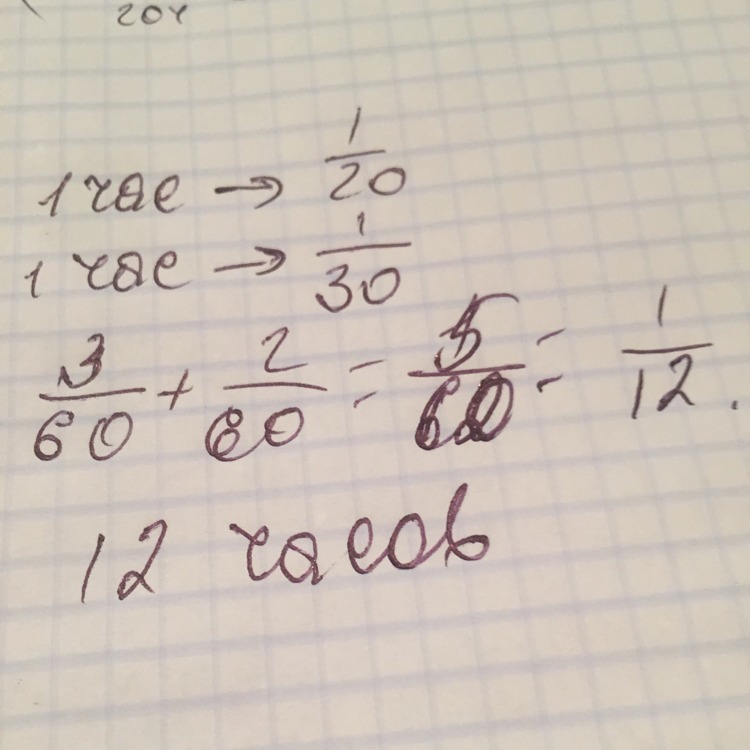 20ч
1 час → 1/20
1 час → 1/30
3/60 + 2/60 = 5/60 = 1/12.
12 часов